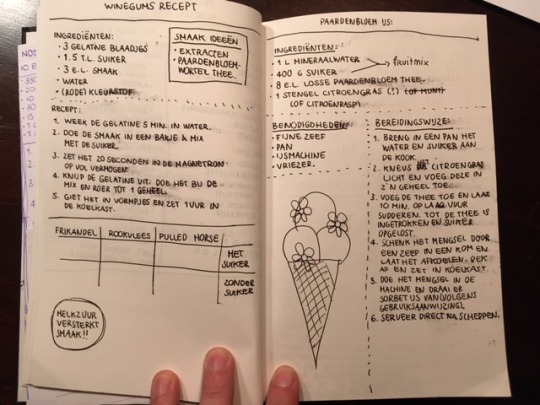 WINEGUMS RECEPT
INGREDIËNTEN:
• 3 GELATINE BLAADJES
• 1.5 T.L. SUIKER
• 3 E.L. SMAAK
• WATER
• (RODE) KLEURSTOF
SMAAK IDEEËN
• EXTRACTEN
• PAARDENBLOEM-
WORTEL THEE.
RECEPT:
1. WEEK DE GELATINE 5 MIN. IN WATER.
2. DOE DE SMAAK IN EEN BAKJE & MIX
MET DE SUIKER.
3. ZET HET 20 SECONDEN IN DE MAGNETRON
OP VOL VERMOGEN.
4. KNIJP DE GELATINE UIT. DOE HET BIJ DE
MIX EN ROER TOT 1 GEHEEL.
5. GIET HET IN VORMPJES EN ZET 1 UUR IN
DE KOELKAST.
FRIKANDEL
ROOKVLEES
PULLED HORSE
MET
SUIKER
ZONDER
SUIKER
MELKZUUR
VERSTERKT
SMAAK!!
PAARDENBLOEM IJS:
INGREDIËNTEN:
• 1 L MINERAALWATER
fruitmix
• 400 G SUIKER
• 8 E.L. LOSSE PAARDENBLOEM THEE.
• 1 STENGEL CITROENGRAS (!) (OF MUNT)
(OF CITROENRASP)
BENODIGDHEDEN:
• FIJNE ZEEF
• PAN
• IJSMACHINE
• VRIEZER.
BEREIDINGSWIJZE:
1. BRENG IN EEN PAN HET
WATER EN SUIKER AAN
DE KOOK.
2. KNEUS HET CITROENGRAS
LICHT EN VOEG DEZE IN
Z'N GEHEEL TOE.
3. VOEG DE THEE TOE EN LAAT
10 MIN. OP LAAG VUUR
SUDDEREN TOT DE THEE IS
INGETROKKEN EN SUIKER
OPGELOST.
4. SCHENK HET MENGSEL DOOR
EEN ZEEF IN EEN KOM EN
LAAT HET AFKOELEN. DEK
AF EN ZET IN KOELKAST.
5. DOE HET MENGSEL IN DE
MACHINE EN DRAAI ER
SORBETIJS VAN (VOLGENS
GEBRUIKSAANWIJZING).
6. SERVEER DIRECT NA SCHEPPEN.